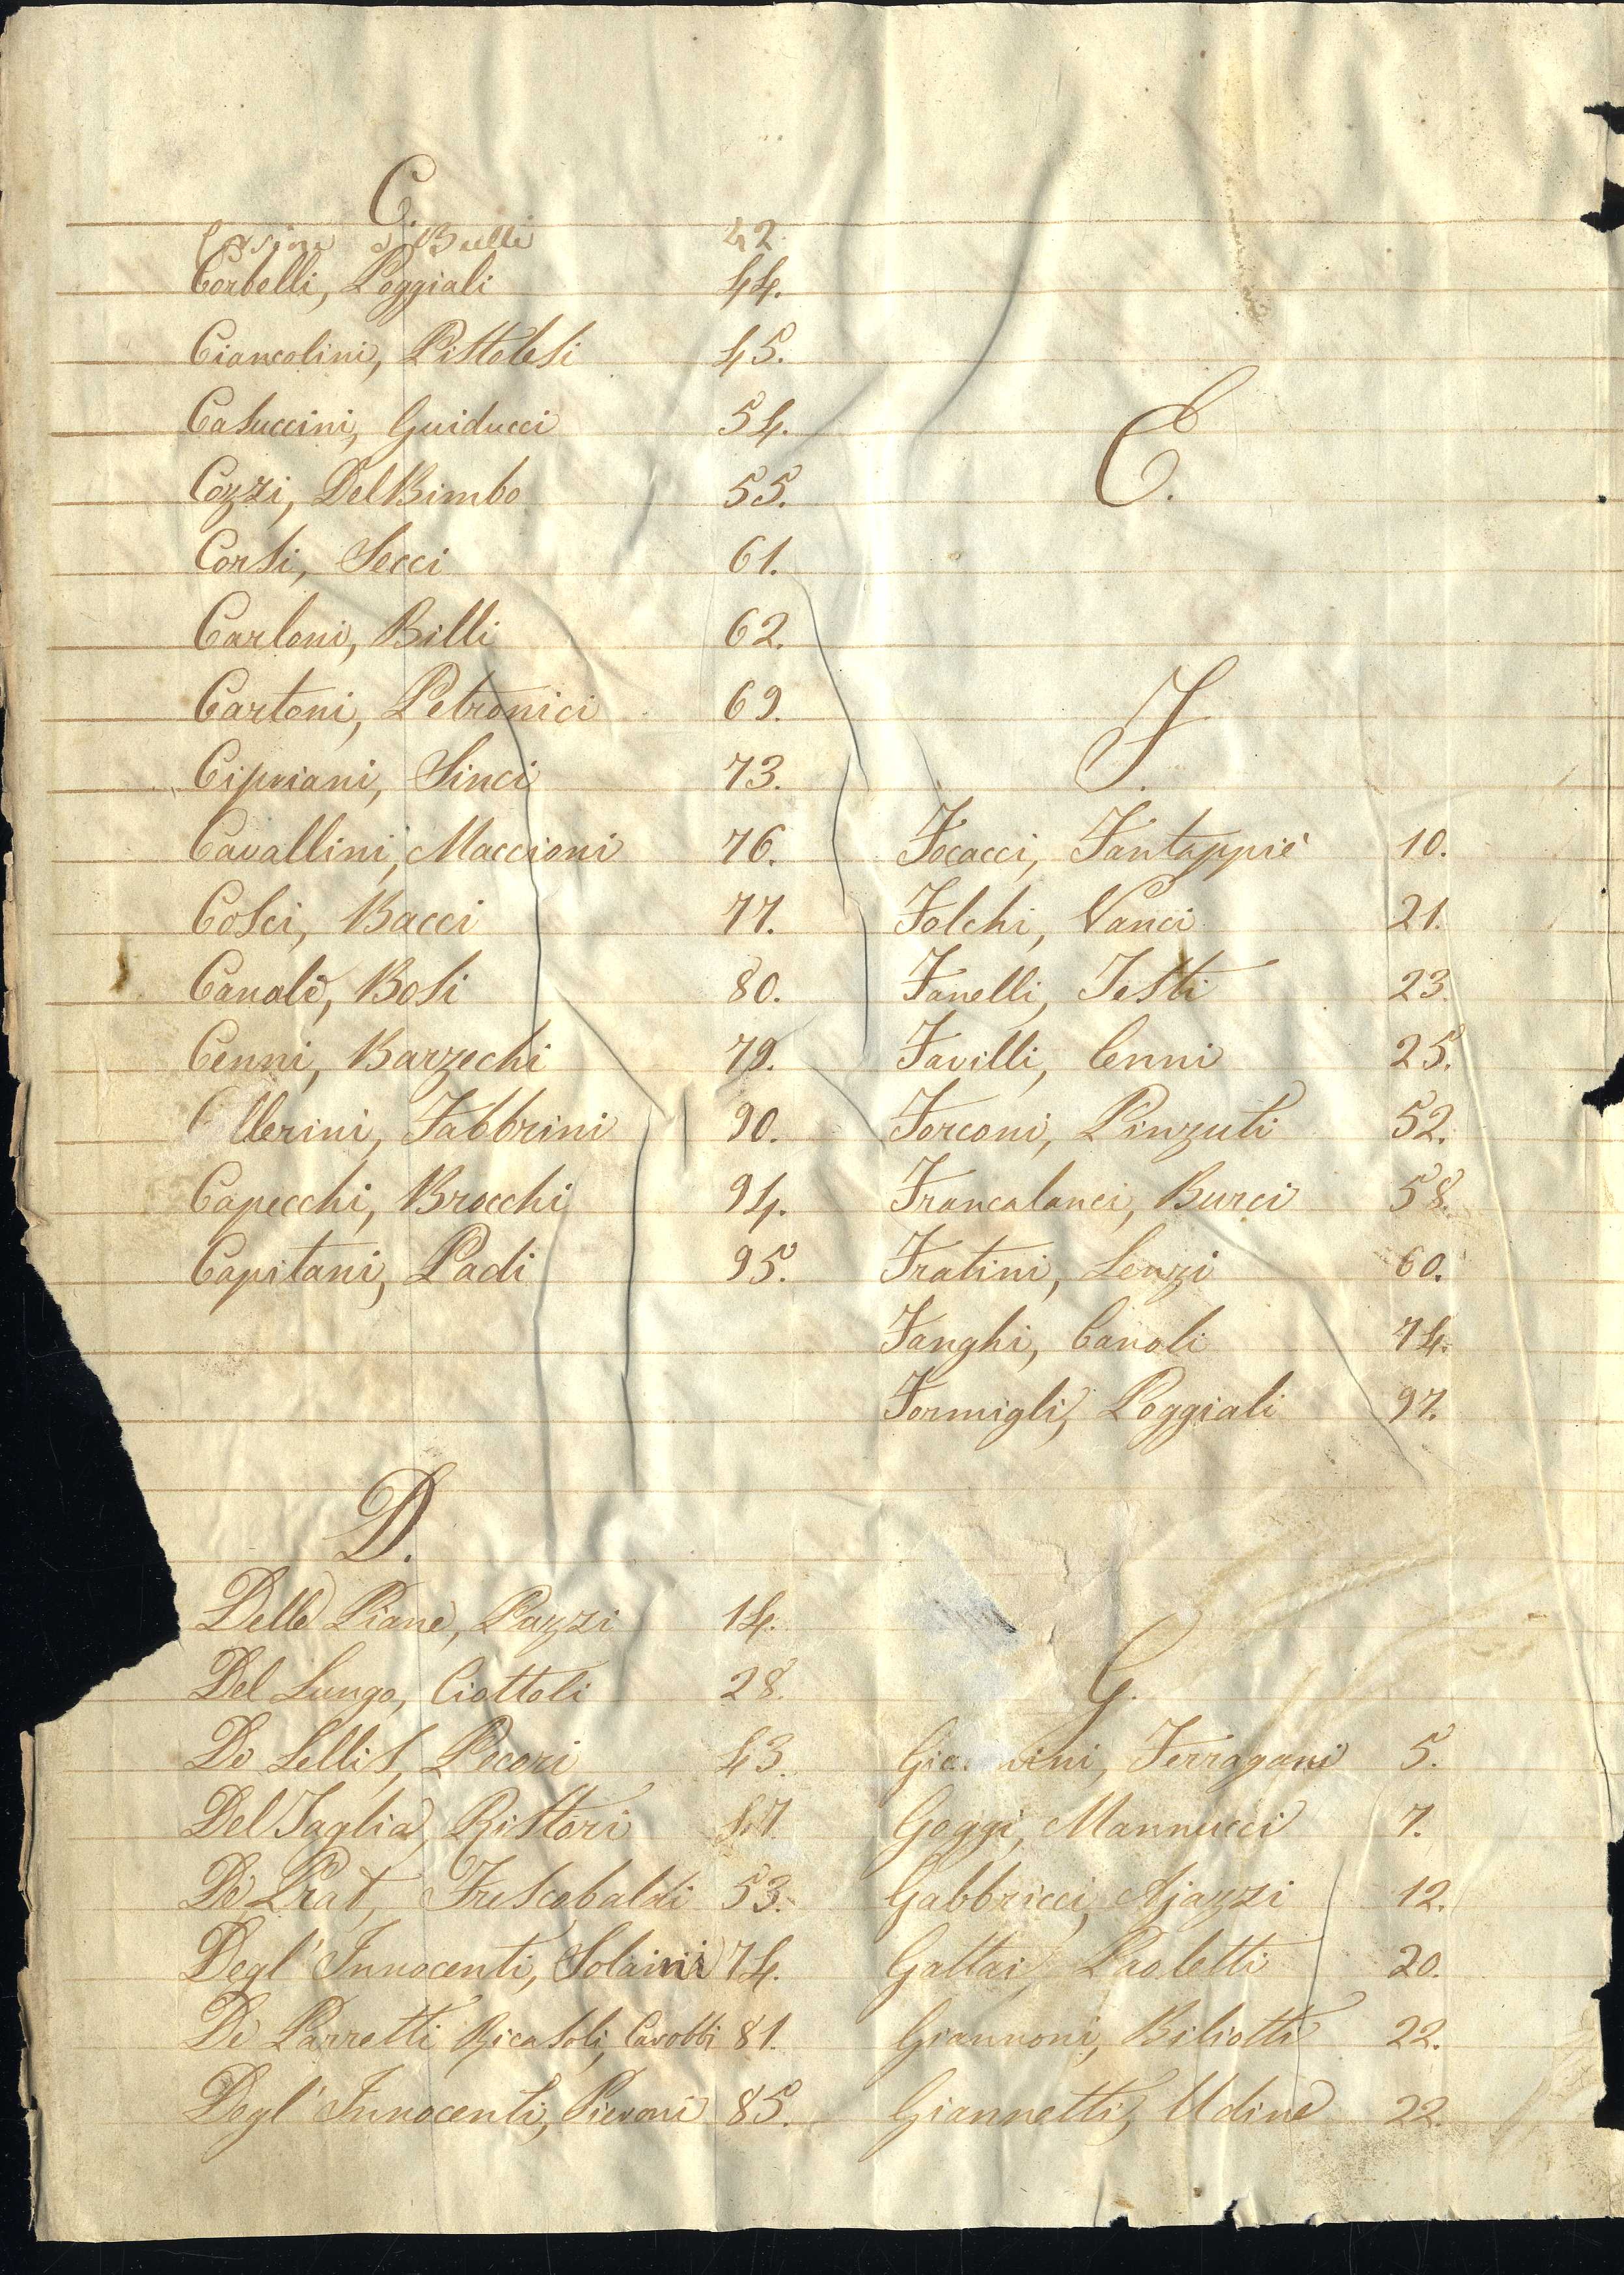 C.
Bulli 42
Corbelli, Poggiali 44.
Ciancolini, Pistolesi 45.
Casuccini, Guiducci 54.
Cozzi, Del Bimbo 55.
Corsi, Secci 61.
Carloni, Billi 62.
Cartoni, Petronici 69.
Cipriani, Sinci 73.
Cavallini, Maccioni 76.
Cosci, Bacci 77.
Canali, Bosi 80.
Cenni, Barzechi 79.
llerini, Fabbrini 90.
Capecchi, Brocchi 94.
Capitani, Padi 95.
D.
Delle Piane, Pazzi 14.
Del Lungo, Ciottoli 28.
De Lellis, Pecori 43.
Del Taglia, Ristori 47
De Prat, Frescobaldi 53.
Degl' Innocenti, Solaini 74.
De Parretti Ricasoli, Carobbi 81.
Degl' Innocenti, Pieroni 85.
E.
F.
Focacci, Fantappiè 10.
Folchi, Vanci 21.
Fanelli, Testi 23.
Favilli, Cenni 25.
Forconi, Pinzuti 52.
Francalanci, Burci 58.
Fratini, Lenzi 60.
Fanghi, Canoli 74.
Formigli, Poggiali 97.
G.
Ferragani 5.
Goggi, Mannucci 7.
Gabbricci, Ajazzi 12.
Gattai, Paoletti 20.
Giannoni, Biliotti 22.
Giannetti, Udine 22.